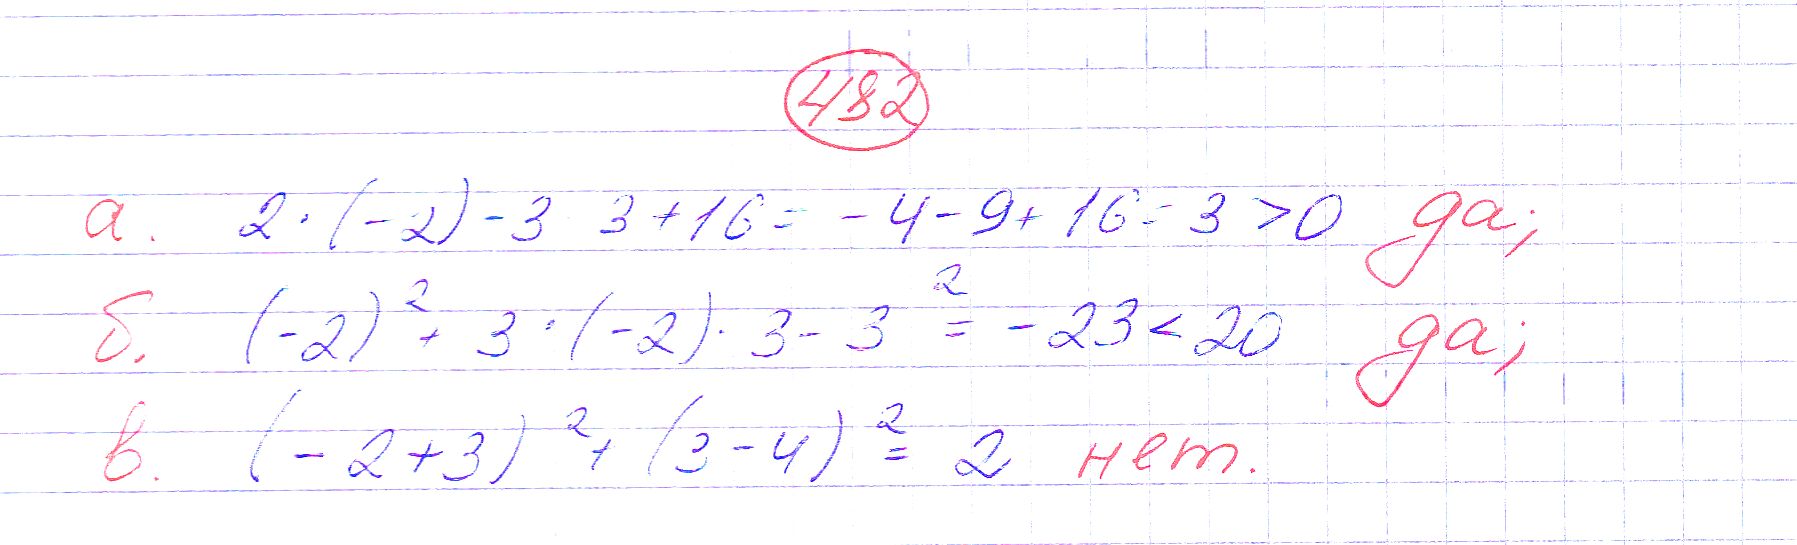 482
а. 2·(-2)-3 3+16= -4-9+16=3>0 да;
б. (-2)²+3·(-2)·3-3²= -23<20 да;
в. (-2+3)²+(3-4)²=2 нет.